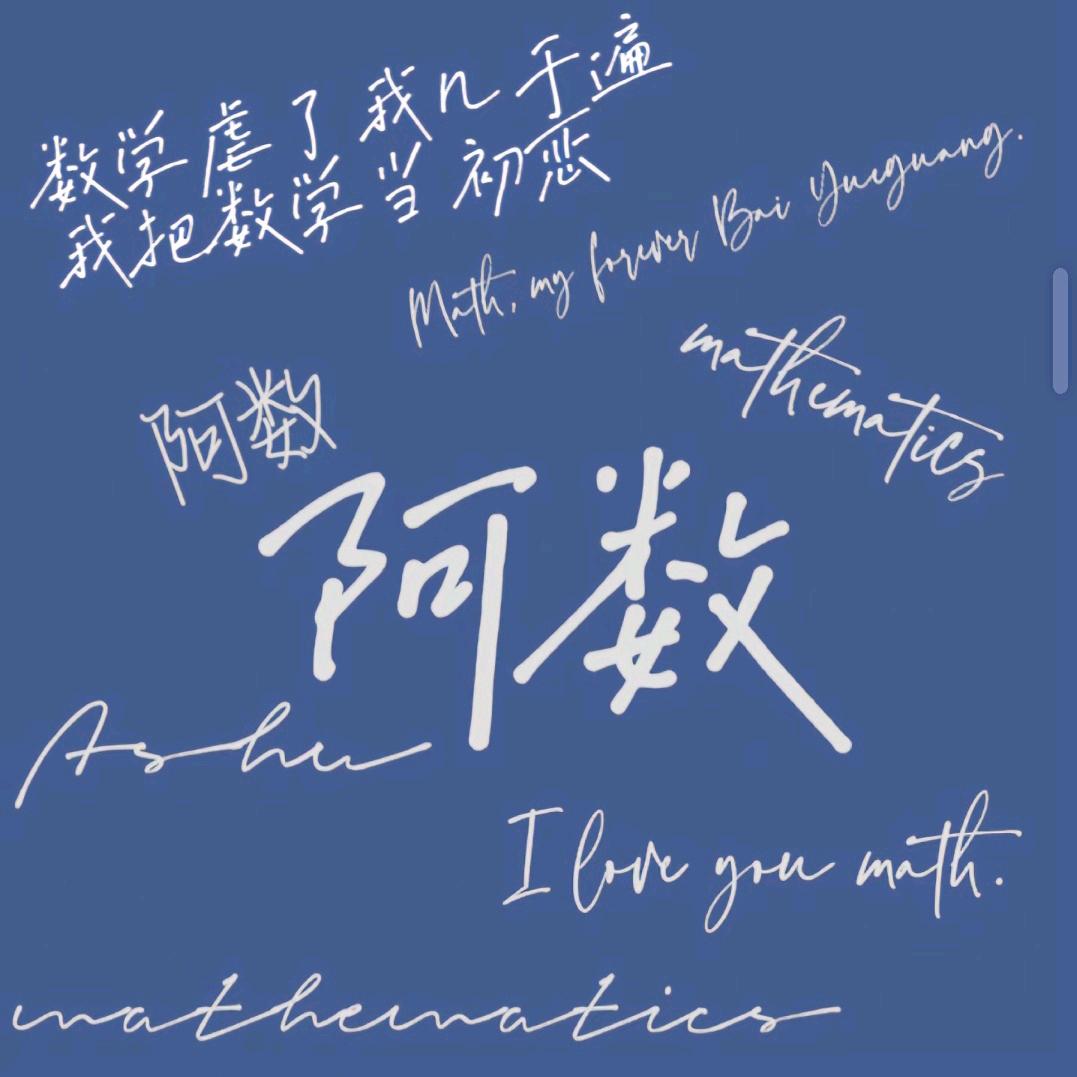 数学虐了我n千遍
我把数学当初恋
Math, my forever Bai Yueguang.
mathematics
阿数
阿数
Ashu
I love you math.
mathematics